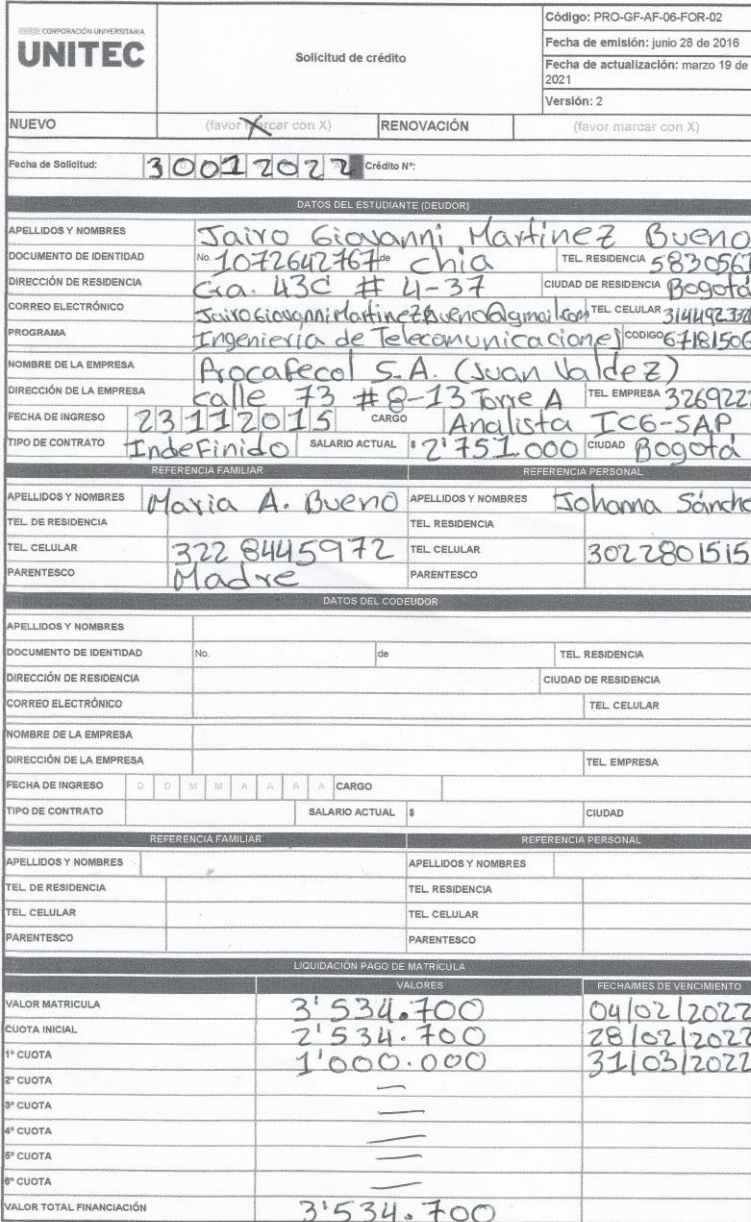 CORPORACIÓN UNIVERSITARIA
UNITEC
Solicitud de crédito
Código: PRO-GF-AF-06-FOR-02
Fecha de emisión: junio 28 de 2016
Fecha de actualización: marzo 19 de
2021
Versión: 2
NUEVO (favor marcar con X) RENOVACIÓN (favor marcar con X)
Fecha de Solicitud: 30012022 Crédito Nº:
DATOS DEL ESTUDIANTE (DEUDOR)
APELLIDOS Y NOMBRES Jairo Giovanni Martinez Bueno
DOCUMENTO DE IDENTIDAD No. 1072642767 de chia TEL. RESIDENCIA 5830561
DIRECCIÓN DE RESIDENCIA Cra. 43C # 4-37 CIUDAD DE RESIDENCIA Bogotá
CORREO ELECTRÓNICO JairoGiovanniMartinezBueno@gmail.com TEL. CELULAR
PROGRAMA Ingeniería de Telecomunicaciones CODIGO 67181506
NOMBRE DE LA EMPRESA Procafecol S.A. (Juan Valdez)
DIRECCIÓN DE LA EMPRESA calle 73 #8-13 Torre A TEL. EMPRESA 326922
FECHA DE INGRESO 23112015 CARGO Analista ICG-SAP
TIPO DE CONTRATO IndeFinido SALARIO ACTUAL $ 2'751.000 CIUDAD Bogotá
REFERENCIA FAMILIAR REFERENCIA PERSONAL
APELLIDOS Y NOMBRES Maria A. Bueno APELLIDOS Y NOMBRES Johanna Sánche
TEL. DE RESIDENCIA TEL. RESIDENCIA
TEL. CELULAR 322 8445972 TEL. CELULAR 3022801515
PARENTESCO Madre PARENTESCO
DATOS DEL CODEUDOR
APELLIDOS Y NOMBRES
DOCUMENTO DE IDENTIDAD No. de TEL. RESIDENCIA
DIRECCIÓN DE RESIDENCIA CIUDAD DE RESIDENCIA
CORREO ELECTRÓNICO TEL. CELULAR
NOMBRE DE LA EMPRESA
DIRECCIÓN DE LA EMPRESA TEL. EMPRESA
FECHA DE INGRESO D D M M A A A A CARGO
TIPO DE CONTRATO SALARIO ACTUAL $ CIUDAD
REFERENCIA FAMILIAR REFERENCIA PERSONAL
APELLIDOS Y NOMBRES APELLIDOS Y NOMBRES
TEL. DE RESIDENCIA TEL. RESIDENCIA
TEL. CELULAR TEL. CELULAR
PARENTESCO PARENTESCO
LIQUIDACIÓN PAGO DE MATRÍCULA
VALORES FECHA/MES DE VENCIMIENTO
VALOR MATRICULA 3'534.700 04/02/2022
CUOTA INICIAL 2'534.700 28/02/2022
1º CUOTA 1'000.000 31/03/2022
2º CUOTA —
3º CUOTA —
4º CUOTA —
5º CUOTA —
6º CUOTA —
VALOR TOTAL FINANCIACIÓN 3'534.700